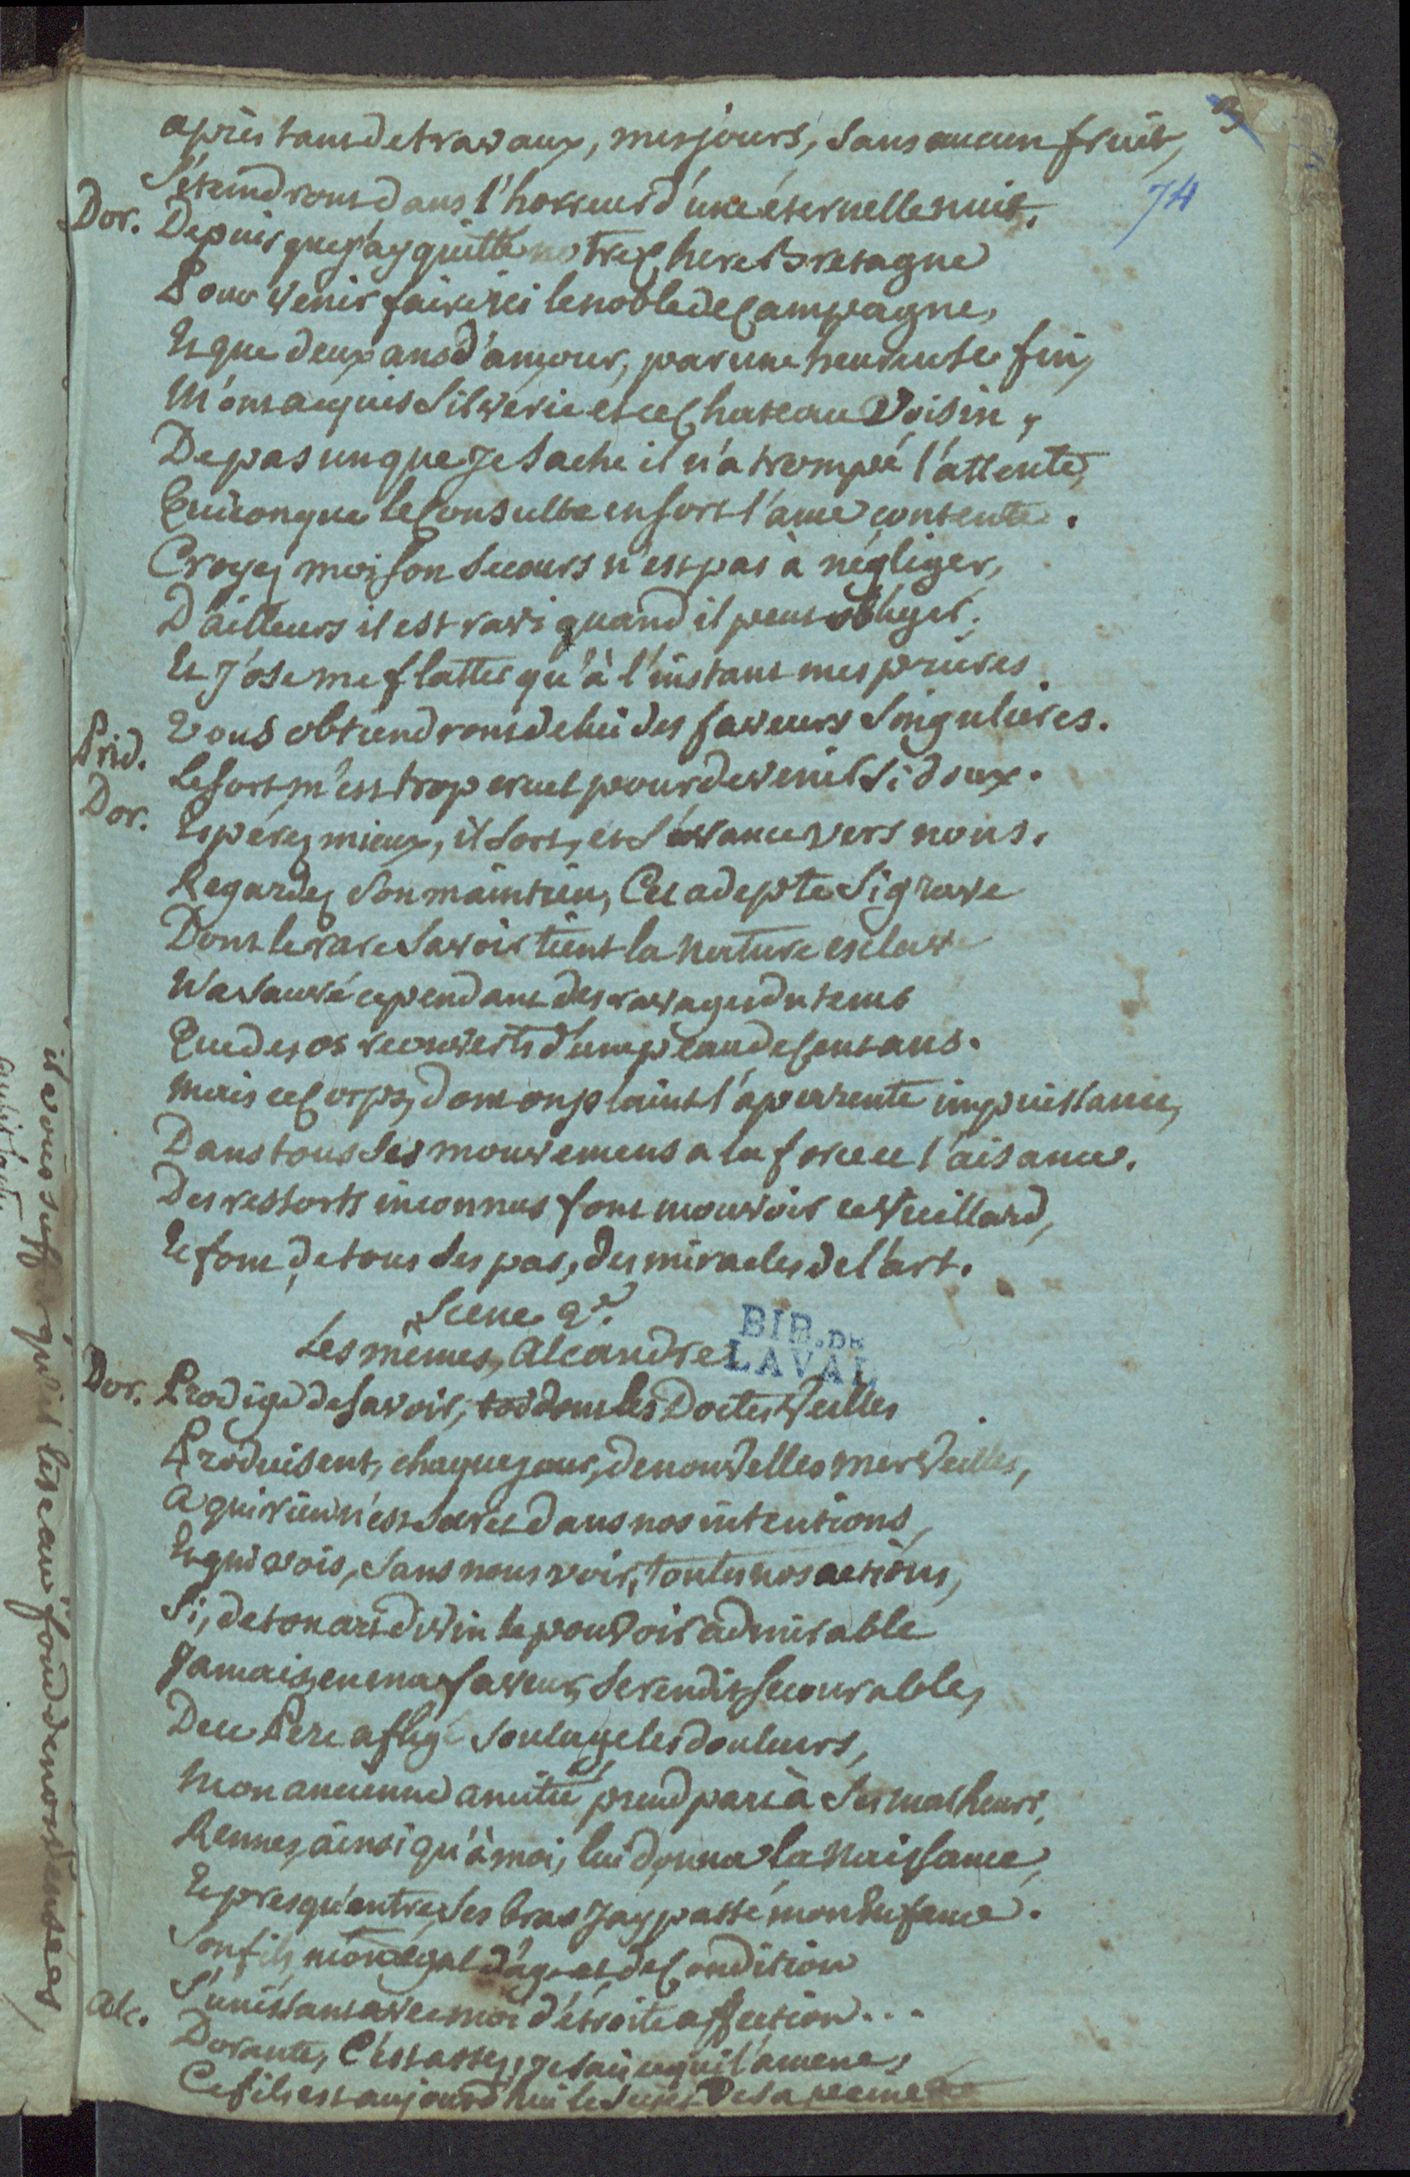 3
74
après tant de travaux, mes jours, sans aucun fruit,
S'éteindront dans l'horreur d'une éternelle nuit.
Dor. Depuis que j'ay quitté notre chere Bretagne
Pour venir faire ici le noble de Campagne,
Et que deux ans d'amour, par une heureuse fin,
M'ont acquis Silverie et ce Chateau Voisin,
De pas un que Je sache il n'a trompé l'attente,
Quiconque le Consulte en sort l'ame contente.
Croyez moi son secours n'est pas à négliger,
D'ailleurs il est ravi quand il peut obliger,
Et J'ose me flatter qu'à l'instant mes prieres
Vous obtiendront de lui des faveurs Singulieres.
Prid. Le sort m'est trop cruel pour devenir si doux.
Dor. Espérez mieux, il sort, et s'avance vers nous.
Regardez Son maintien, Cet adepte Si grave
Dont le rare Savoir tient la Nature esclave
N'a Sauvé cependant des ravages du tems
Que des os recouverts d'une peau de Cent ans.
Mais ce Corps, dont on plaint l'aparente impuissance,
Dans tous Ses mouvemens a la force et l'aisance.
Des ressorts inconnus font mouvoir ce Vieillard,
Et font, de tous Ses pas, des miracles de l'art.
Scene 2e.
Les mêmes, Alcandre
BIB. DE
LAVAL
Dor. Prodige de Savoir, dont les Doctes Veilles
Produisent, chaque jour, de nouvelles merveilles,
A qui rien n'est Secret dans nos intentions,
Et qui vois, Sans nous voir, toutes nos actions,
Si, de ton art divin le pouvoir admirable
Jamais, en ma faveur, Se rendit Secourable,
De ce Pere afligé Soulage les douleurs,
Mon ancienne amitié prend part à Ses malheurs,
Rennes, ainsi qu'à moi, lui donna la Naissance,
Et presqu'entre Ses bras J'ay passé mon Enfance.
Son fils, mon égal d'age et de Condition
S'unissant avec moi d'étroite affection...
Alc. Dorante, C'est assez, je sais ce qui l'amene,
Ce fils est aujourd'hui le Sujet De sa peine